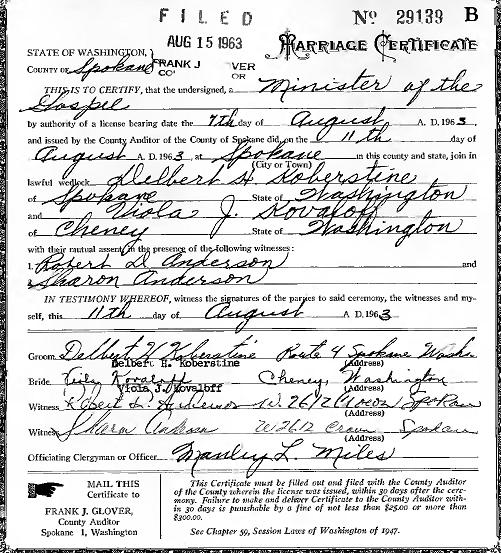 FILED
AUG 15 1963
No 29139 B
Marriage Certificate
STATE OF WASHINGTON,
COUNTY OF Spokane
FRANK J
CO'
VER
OR
THIS IS TO CERTIFY, that the undersigned, a Minister of the
Gospel
by authority of a license bearing date the 7th day of August A. D. 1963
and issued by the County Auditor of the County of Spokane did on the 11th day of
August A. D. 1963 at Spokane in this county and state, join in
(City or Town)
lawful wedlock Delbert H. Koberstine
of Spokane State of Washington
and Viola J. Kovaloff
of Cheney State of Washington
with their mutual assent, in the presence of the following witnesses:
1. Robert D. Anderson and
Sharon Anderson
IN TESTIMONY WHEREOF, witness the signatures of the parties to said ceremony, the witnesses and my-
self, this 11th day of August A. D. 1963
Groom Delbert H Koberstine Route 4 Spokane Washn
Delbert H. Koberstine (Address)
Bride Kovaloff Cheney, Washington
Viola J. Kovaloff (Address)
Witness Robert D. Anderson W. 2612 Spokane
(Address)
Witness Sharon Anderson W 2612 Spokane
(Address)
Officiating Clergyman or Officer. Manley L. Miles
MAIL THIS
Certificate to
FRANK J. GLOVER,
County Auditor
Spokane 1, Washington
This Certificate must be filled out and filed with the County Auditor
of the County wherein the license was issued, within 30 days after the cere-
mony. Failure to make and deliver Certificate to the County Auditor with-
in 30 days is punishable by a fine of not less than $25.00 or more than
$300.00.
See Chapter 59, Session Laws of Washington of 1947.